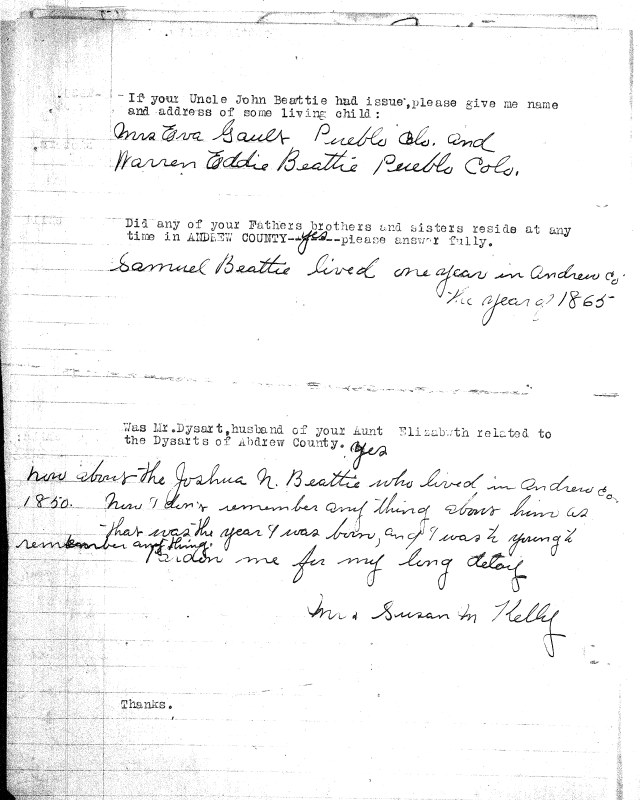 If your Uncle John Beattie had issue,please give me name
and address of some living child:
Mrs Eva Gault Pueblo Colo. and
Warren Eddie Beattie Pueblo Colo.
Did any of your Fathers brothers and sisters reside at any
time in ANDREW COUNTY--yes--please answer fully.
Samuel Beattie lived one year in Andrew Co.
The year of 1865
Was Mr.Dysart,husband of your Aunt Elizabeth related to
the Dysarts of Abdrew County. yes
now about the Joshua N. Beattie who lived in Andrew Co.
1850. now I don't remember any thing about him as
that was the year I was born, and I was to young to
remember any thing.
Pardon me for my long delay
Mrs Susan M Kelly
Thanks.